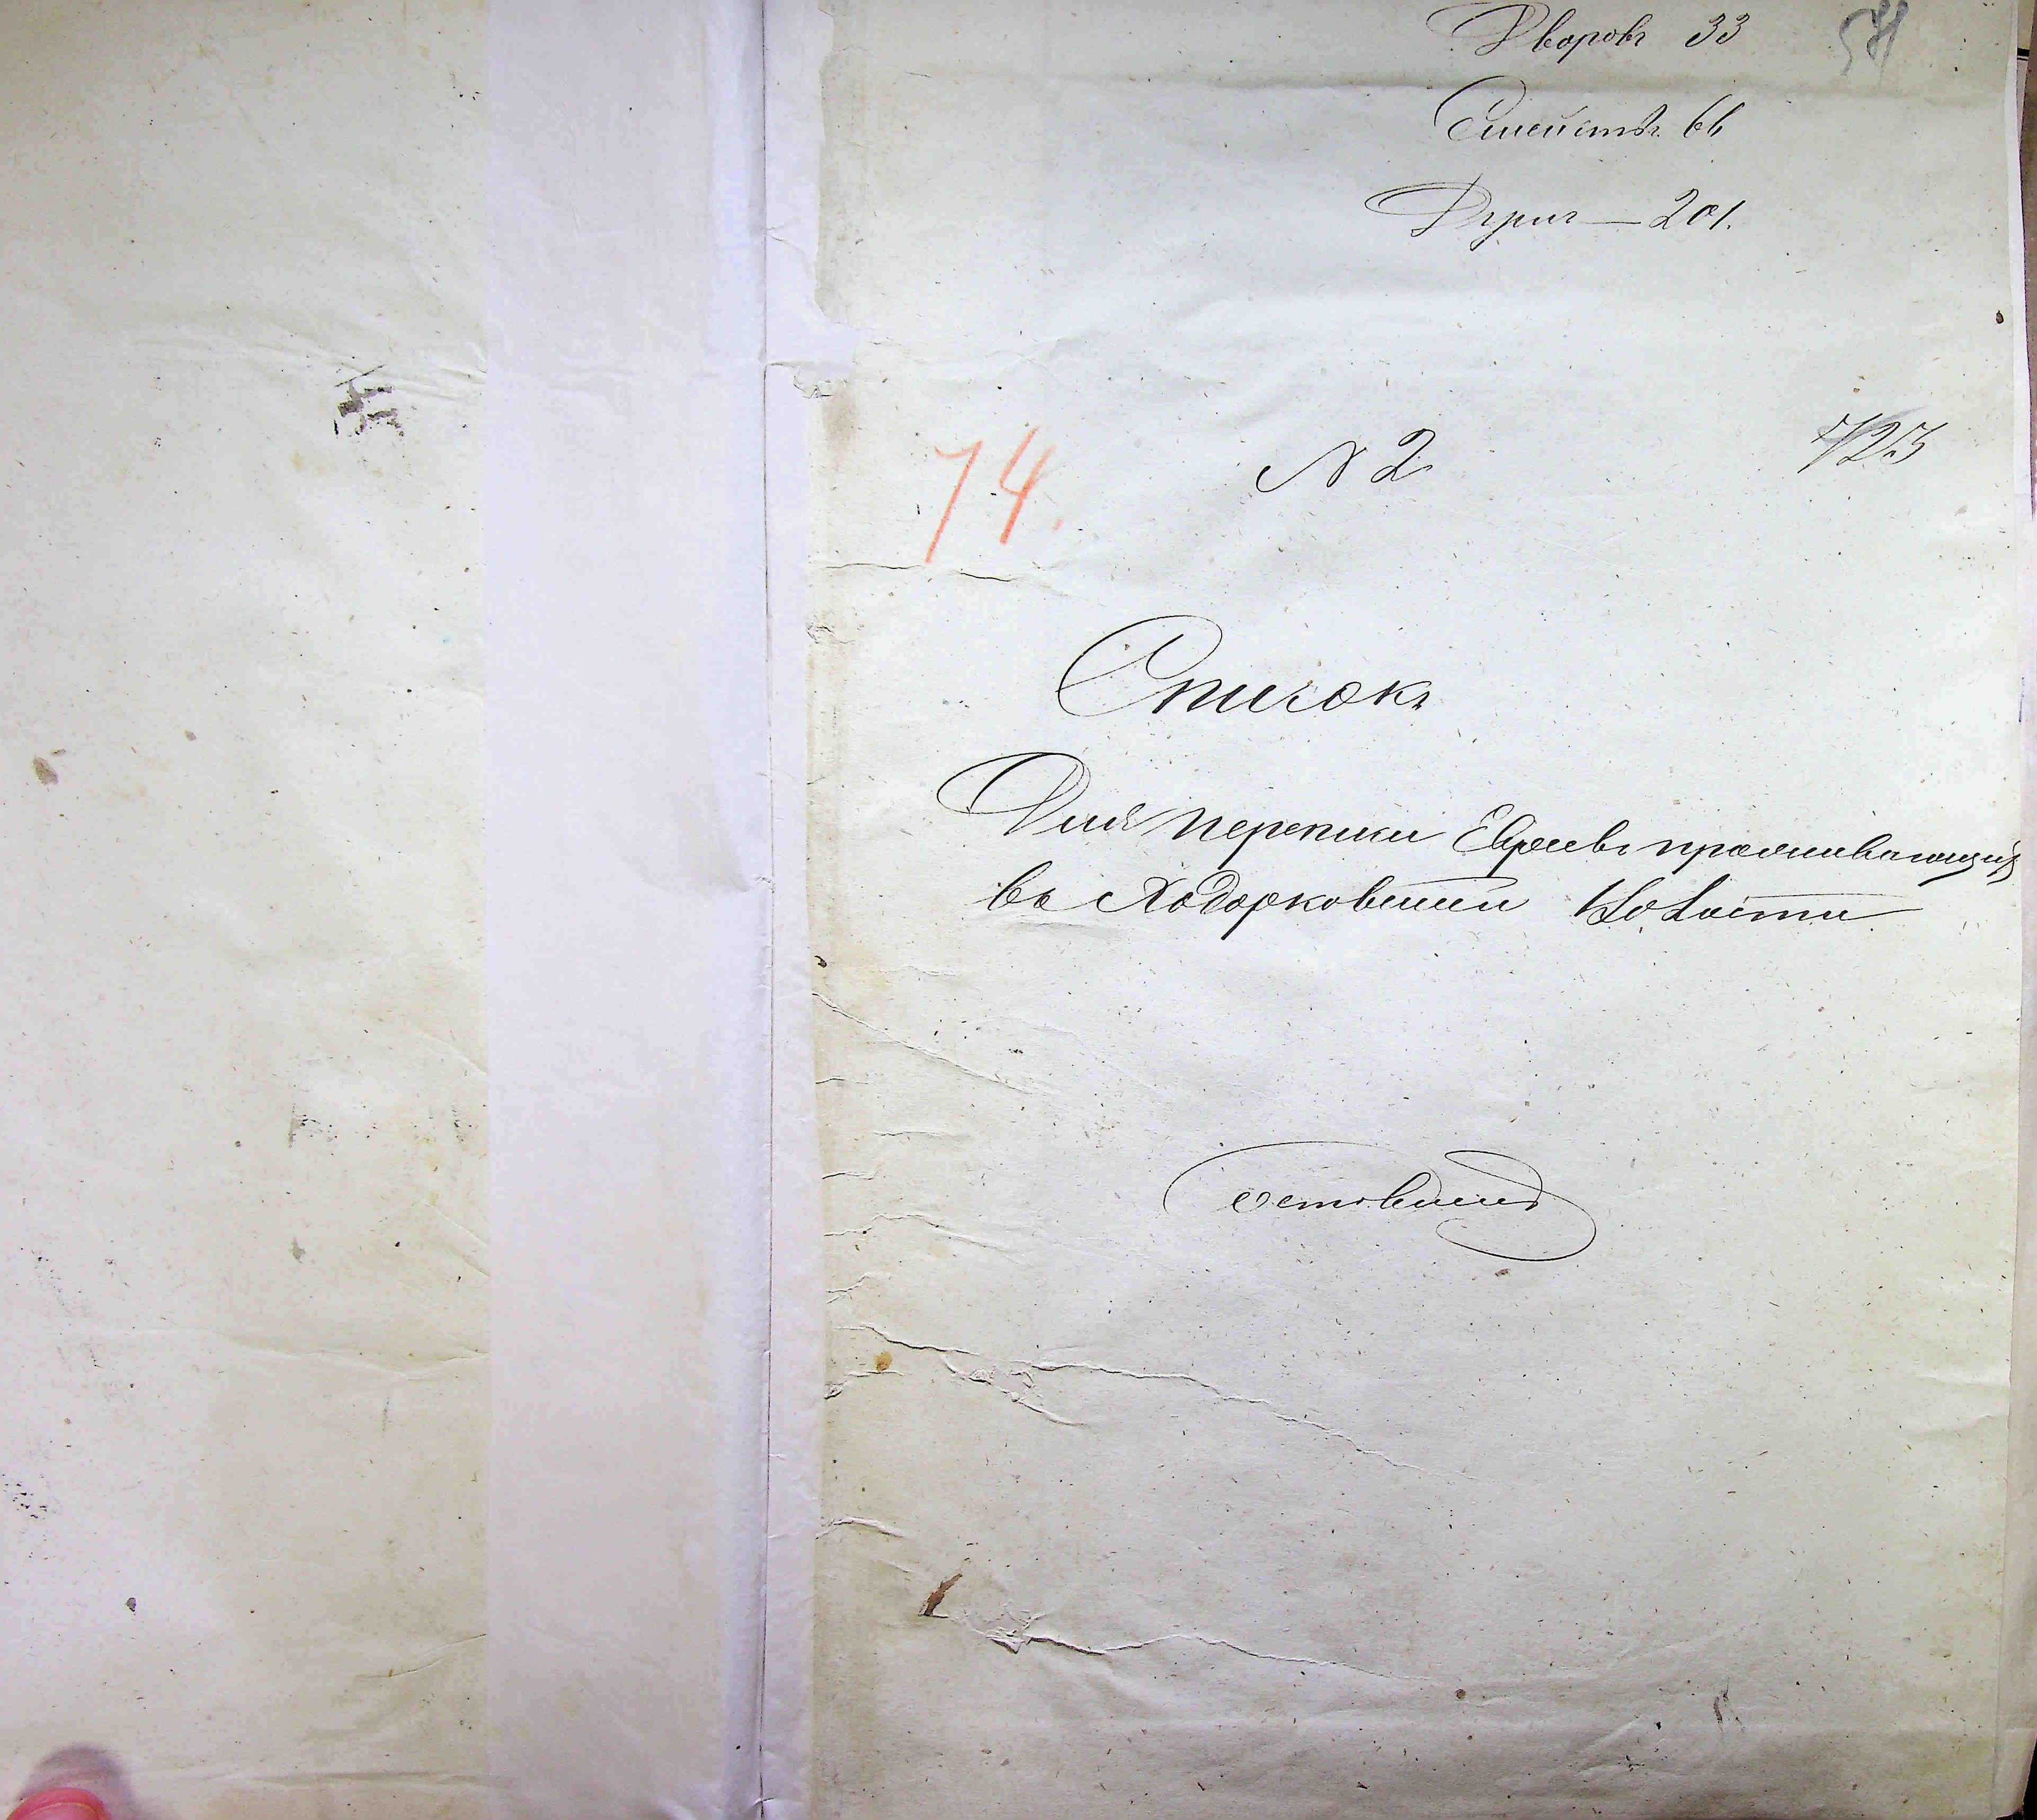 Дворовъ 33
Семействъ 66
Другихъ — 201.
74.
N 2
723
Списокъ
Для переписи Евреевъ проживающихъ
въ Ходорковской Волости